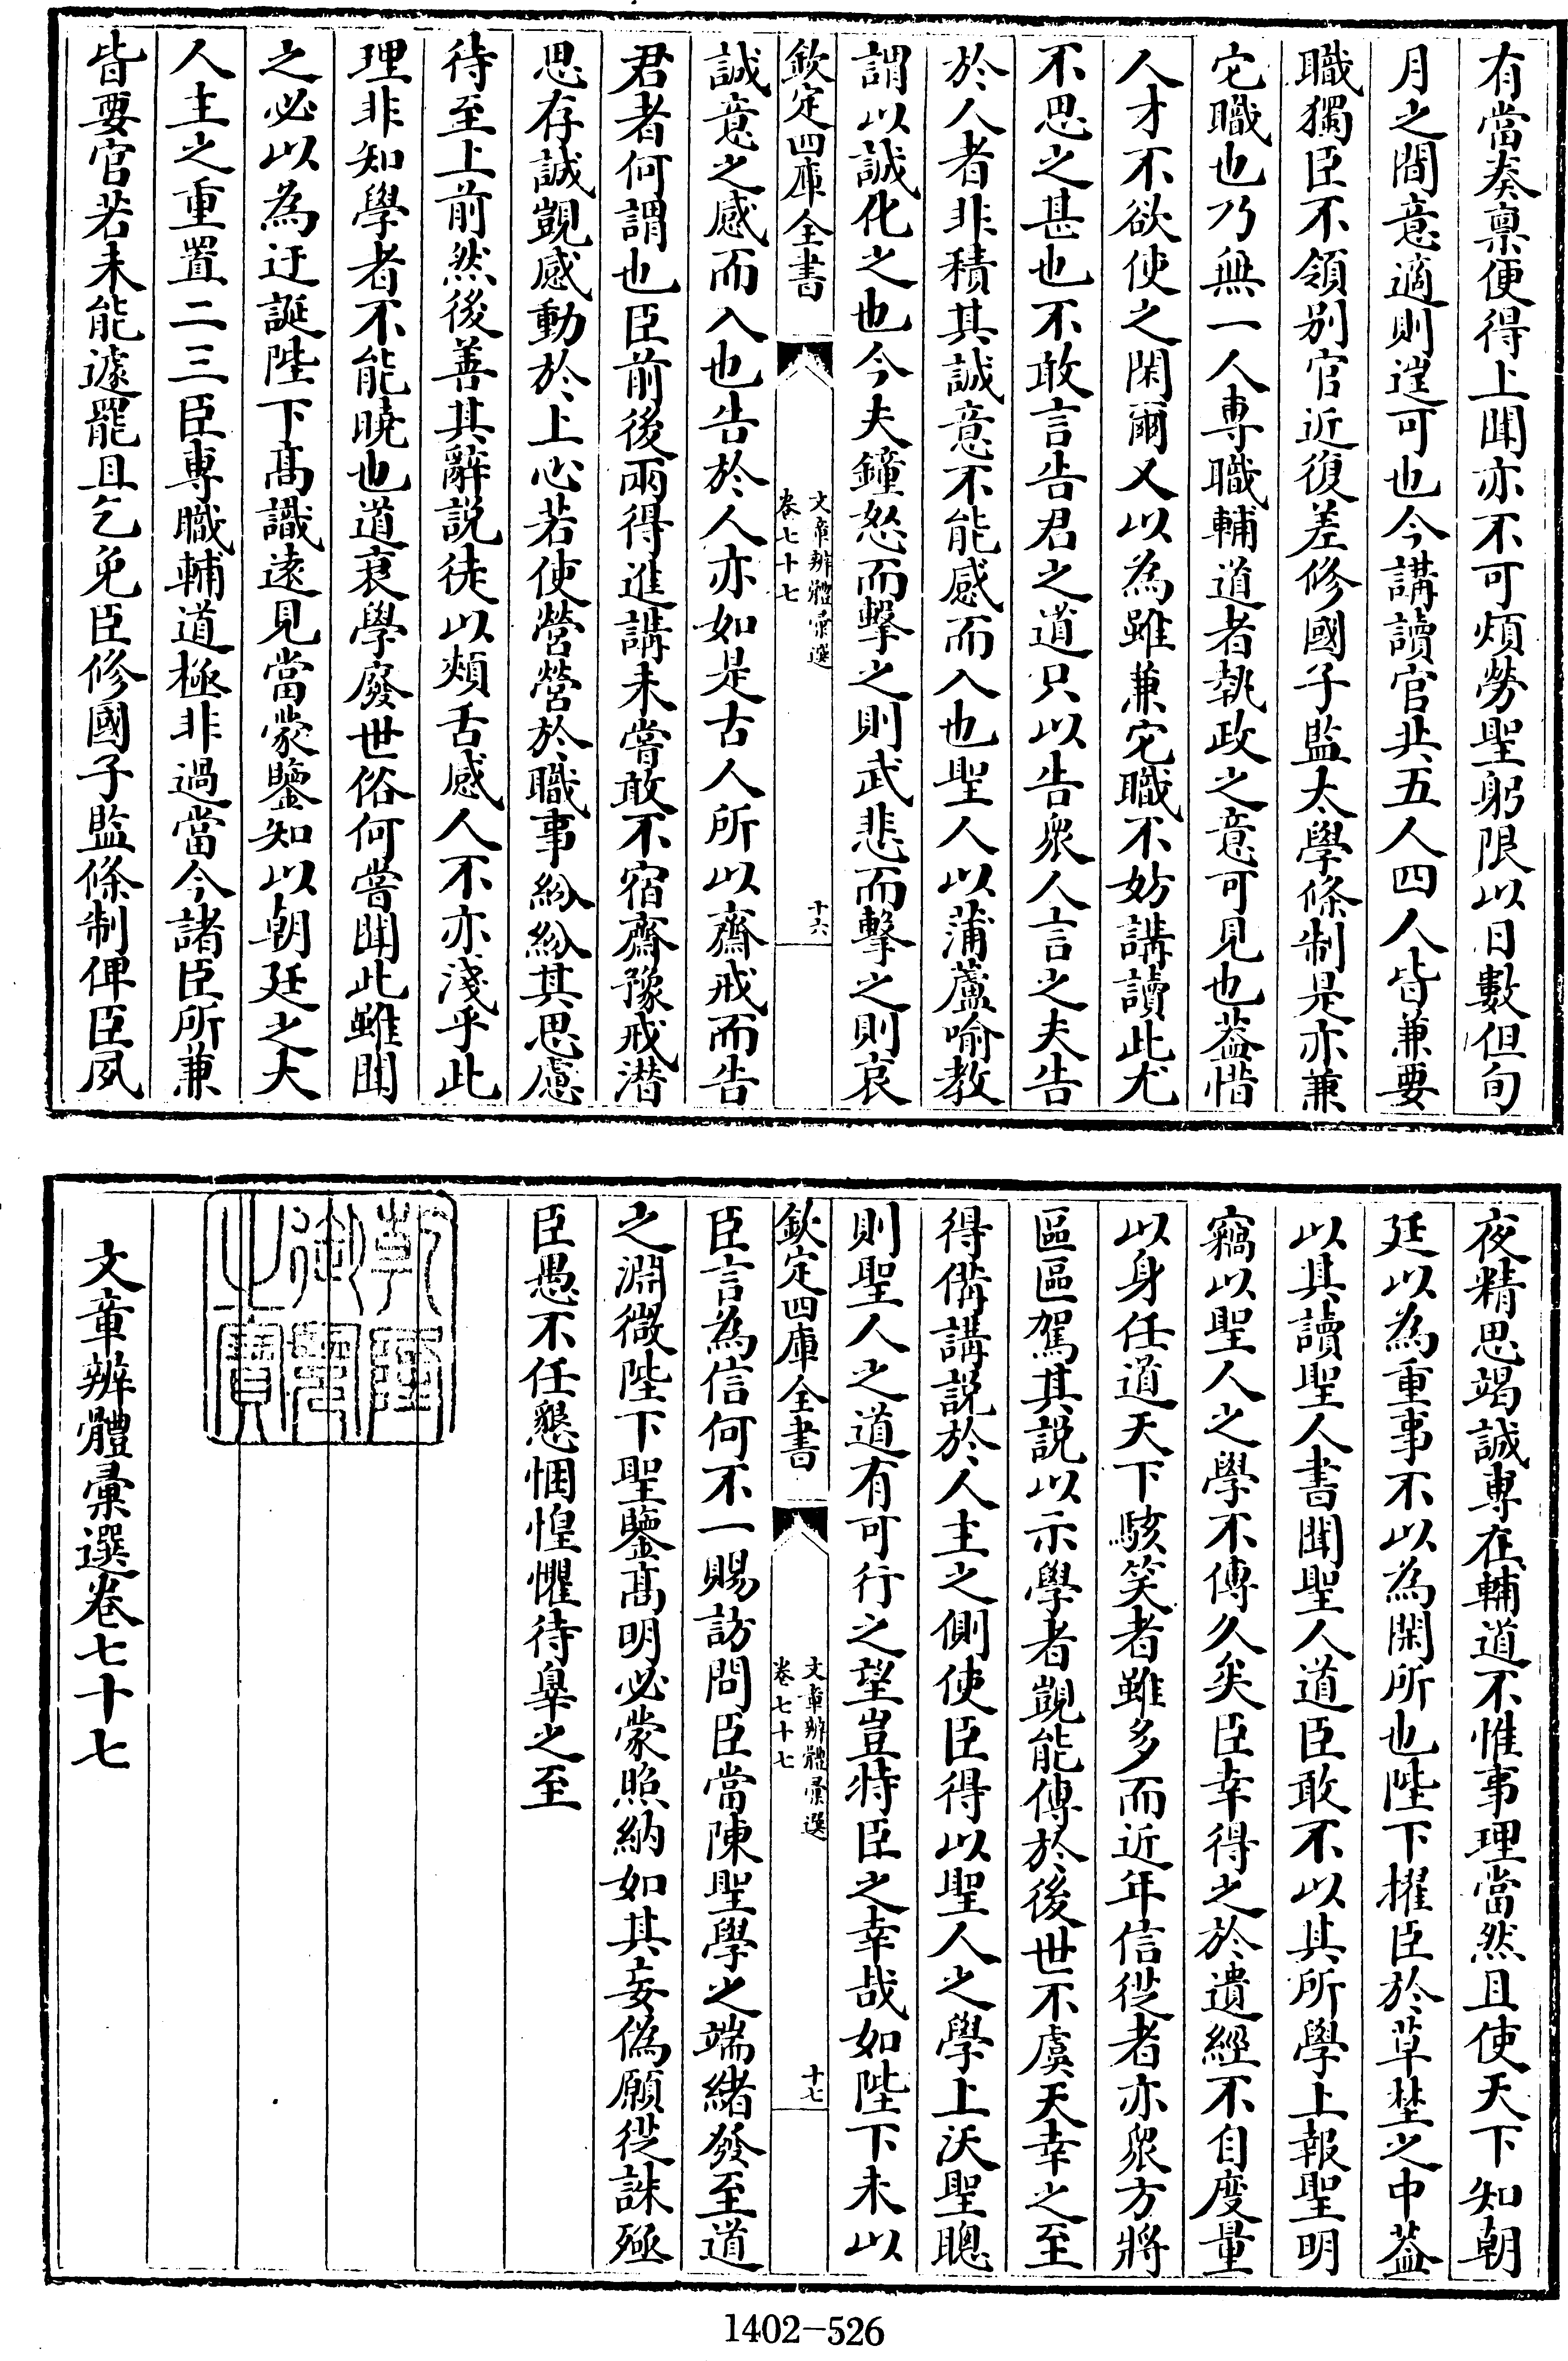 有當奏禀便得上聞亦不可煩勞聖躬限以日數但旬
月之間意適則遑可也今講讀官共五人四人皆兼要
職獨臣不領别官近復差修國子監太學條制是亦兼
宅職也乃無一人専職輔道者執政之意可見也葢惜
人才不欲使之閑爾又以為雖兼宅職不妨講讀此尤
不思之甚也不敢言告君之道只以告衆人言之夫告
於人者非積其誠意不能感而入也聖人以蒲蘆喻教
謂以誠化之也今夫鐘怒而擊之則武悲而擊之則哀
欽定四庫全書
文章辨體彚選
卷七十七
十六
誠意之感而入也告於人亦如是古人所以齋戒而告
君者何謂也臣前後兩得進講未嘗敢不宿齋豫戒潜
思存誠覬感動於上心若使營營於職事紛紛其思慮
待至上前然後善其辭説徒以頰舌感人不亦淺乎此
理非知學者不能曉也道衰學廢世俗何嘗聞此雖聞
之必以為迂誕陛下髙識遠見當蒙鑒知以朝廷之大
人主之重置二三臣専職輔道極非過當今諸臣所兼
皆要官若未能遽罷且乞免臣修國子監條制俾臣夙
夜精思竭誠専在輔道不惟事理當然且使天下知朝
廷以為重事不以為閑所也陛下擢臣於草埜之中葢
以其讀聖人書聞聖人道臣敢不以其所學上報聖明
竊以聖人之學不傳久矣臣幸得之於遺經不自度量
以身任道天下駭笑者雖多而近年信從者亦衆方將
區區駕其説以示學者覬能傳於後世不虞天幸之至
得備講説於人主之側使臣得以聖人之學上沃聖聰
則聖人之道有可行之望豈特臣之幸哉如陛下未以
欽定四庫全書
文章辨體彚選
卷七十七
十七
臣言為信何不一賜訪問臣當陳聖學之端緒發至道
之淵微陛下聖鑒髙明必蒙照納如其妄偽願從誅殛
臣愚不任懇悃惶懼待辠之至
乾隆御覽之寶
文章辨體彚選卷七十七
1402-526